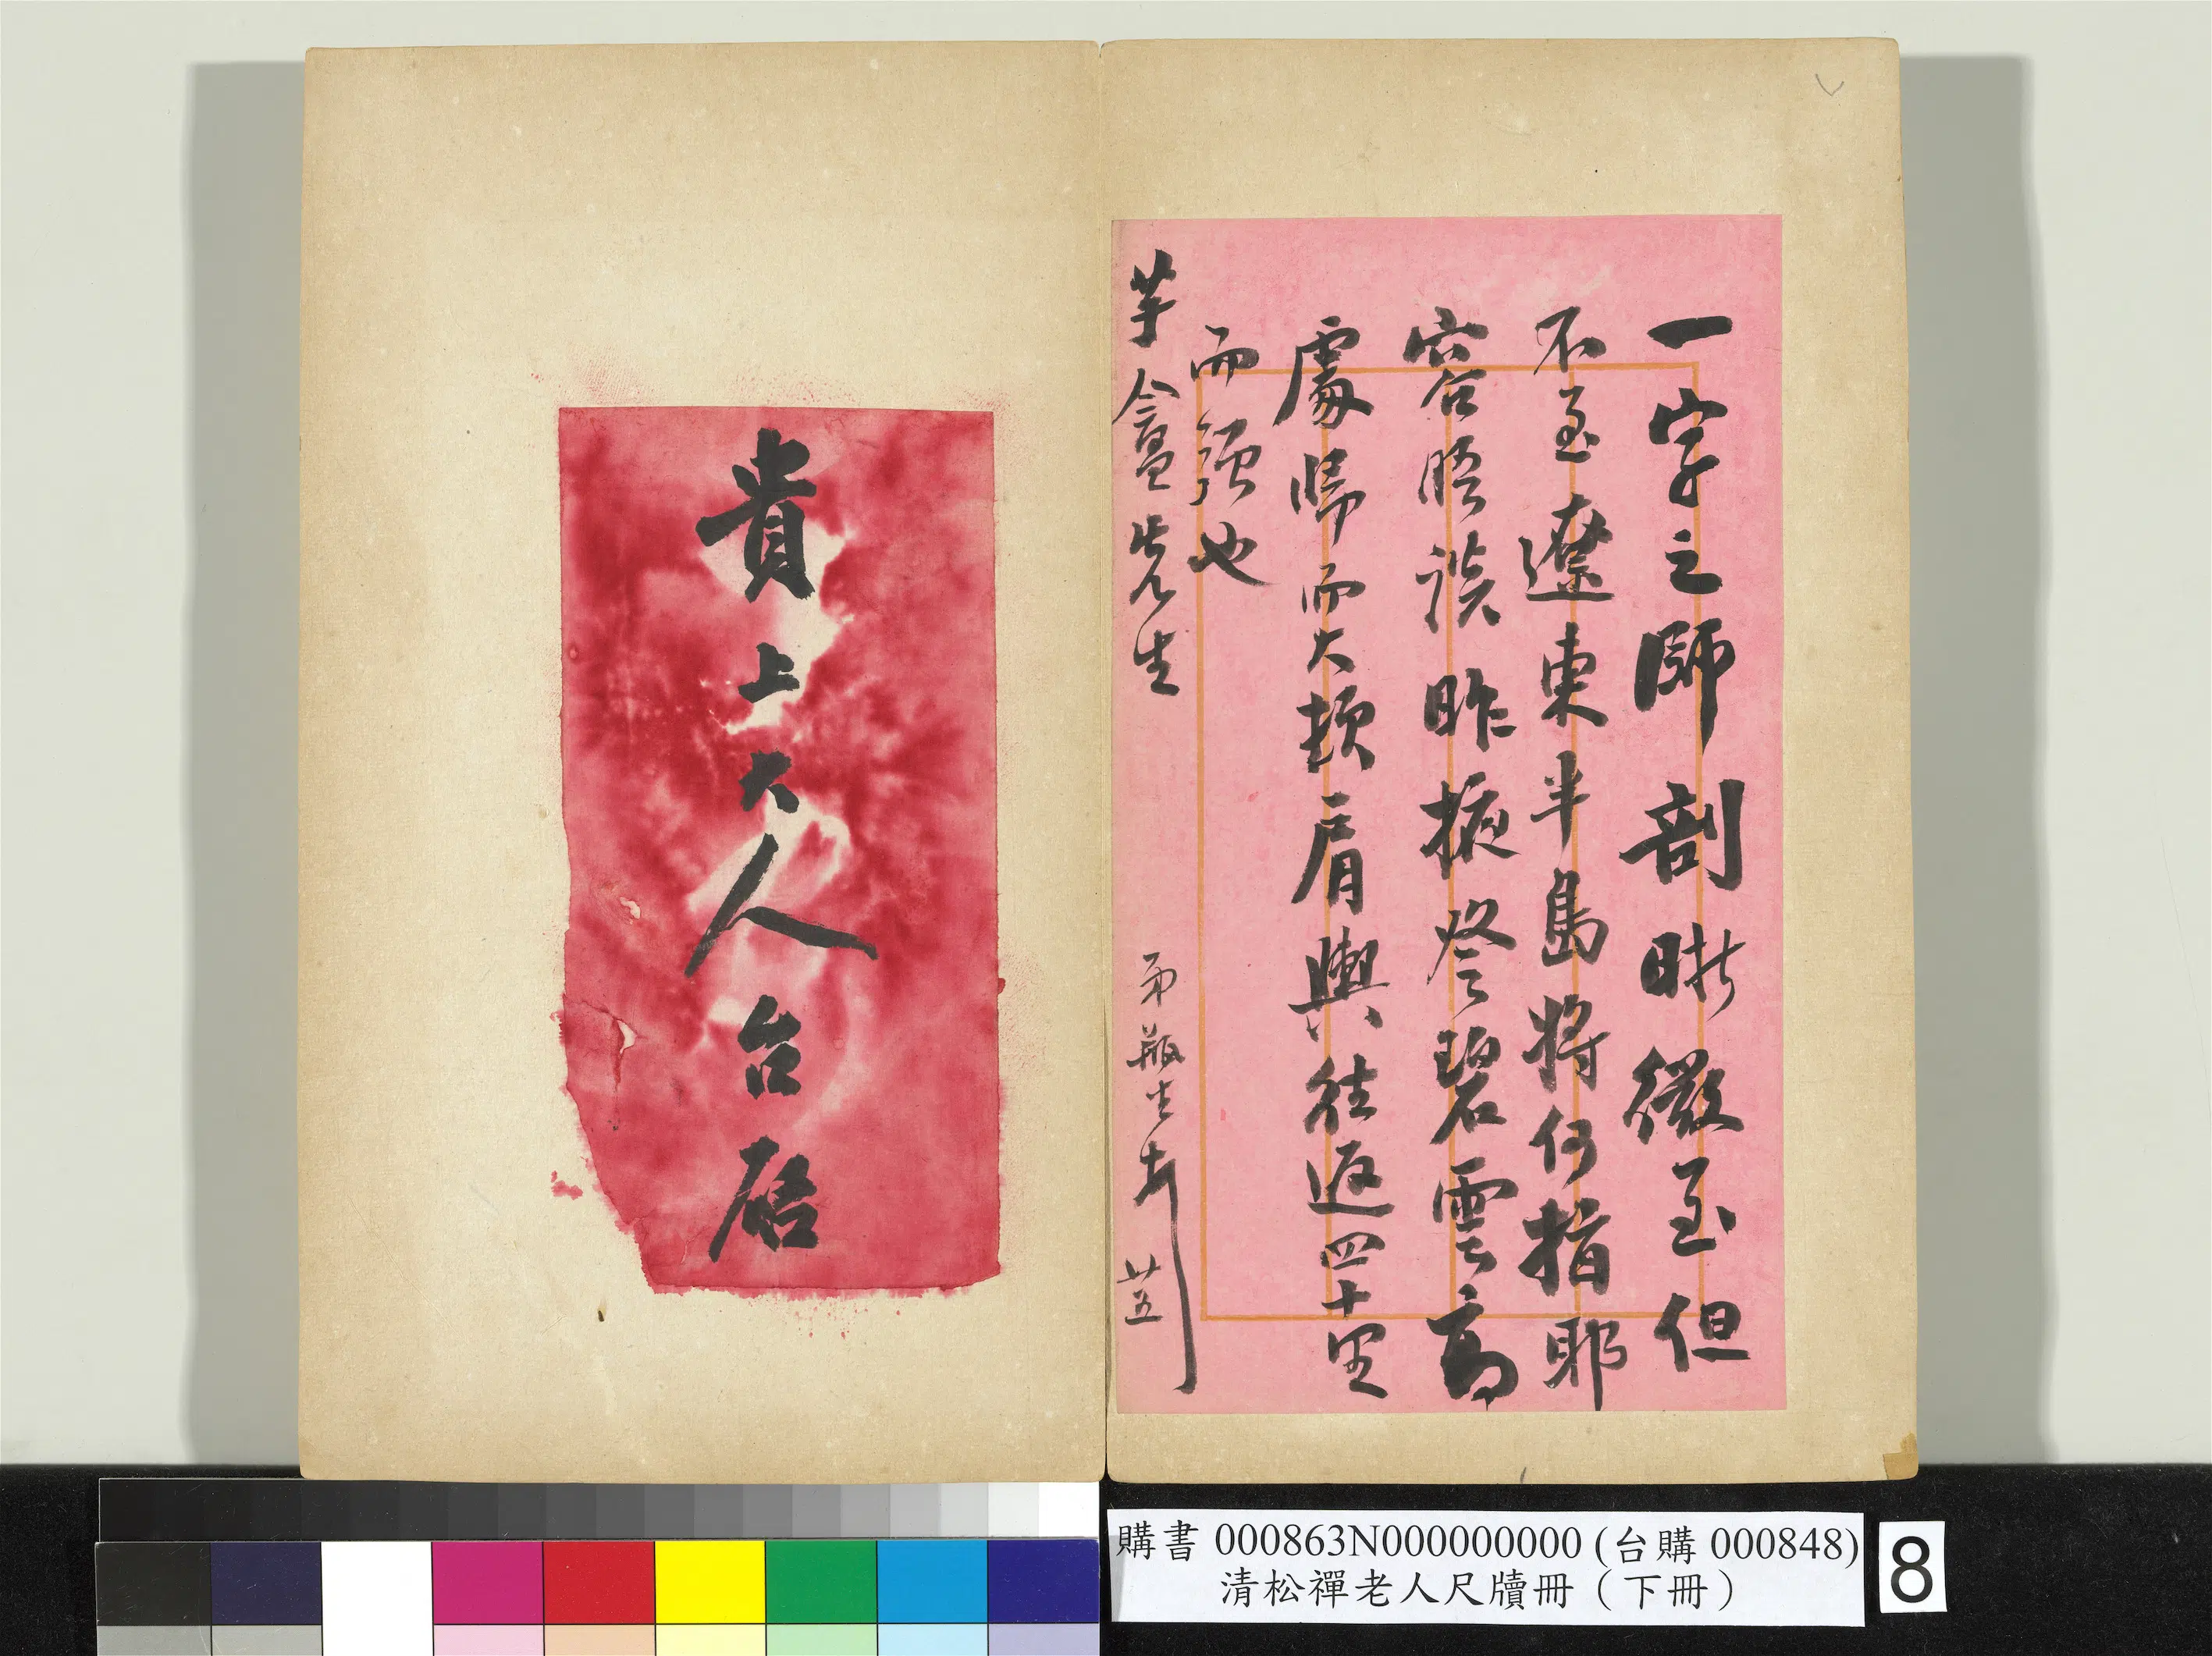 一字之師剖晰微至但
不至遼東半島將何指耶
容俟晤談昨掖登碧雲高
處歸而大頓肩輿往返四十里
而強也
芋盦先生
弟瓶生頓首 廿五
貴上大人台啟
購書 000863N000000000 (台購 000848)
清松禪老人尺牘冊（下冊）
8